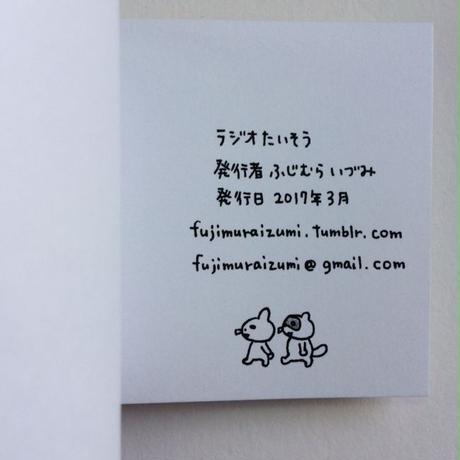 ラジオたいそう
発行者 ふじむら いづみ
発行日 2017年3月
fujimuraizumi.tumblr.com
fujimuraizumi@gmail.com